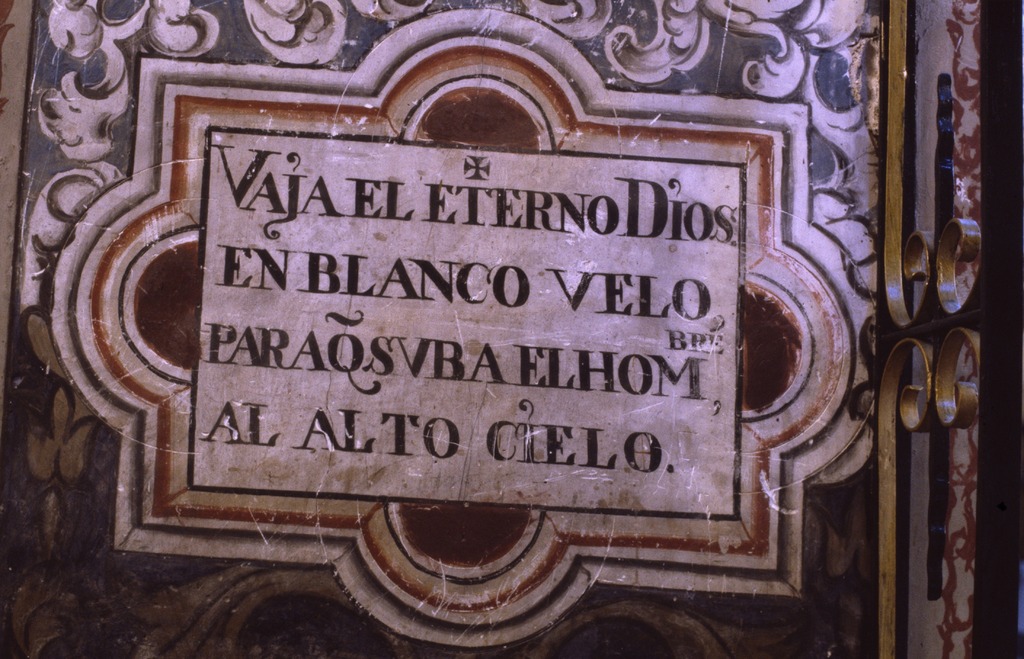 VAJA EL ETERNO DIOS.
EN BLANCO VELO,
PARA Q̃ SVBA EL HOMBRE,
AL ALTO CIELO.